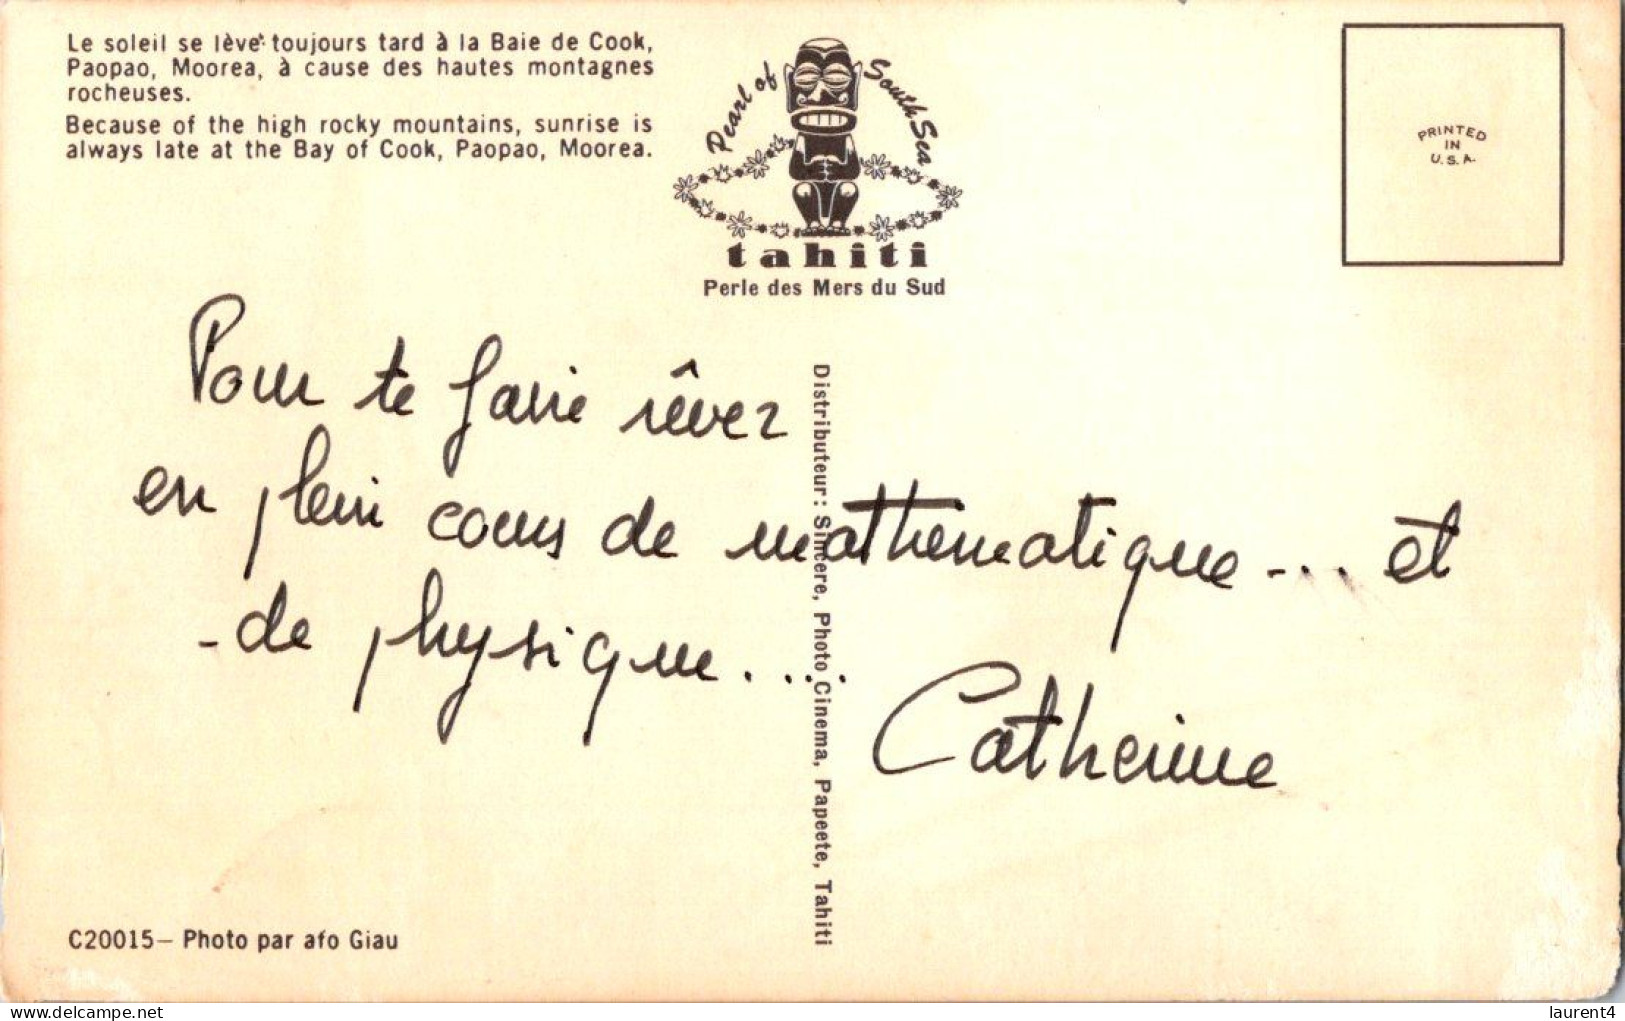 Le soleil se lève toujours tard à la Baie de Cook,
Paopao, Moorea, à cause des hautes montagnes
rocheuses.
Because of the high rocky mountains, sunrise is
always late at the Bay of Cook, Paopao, Moorea.
Pearl of South Sea
tahiti
Perle des Mers du Sud
PRINTED
IN
U.S.A.
Pour te faire rêver
en plein cours de mathématique... et
-de physique....
Catherine
Distributeur: Sincere, Photo Cinema, Papeete, Tahiti
C20015– Photo par afo Giau
delcampe.net
laurent4